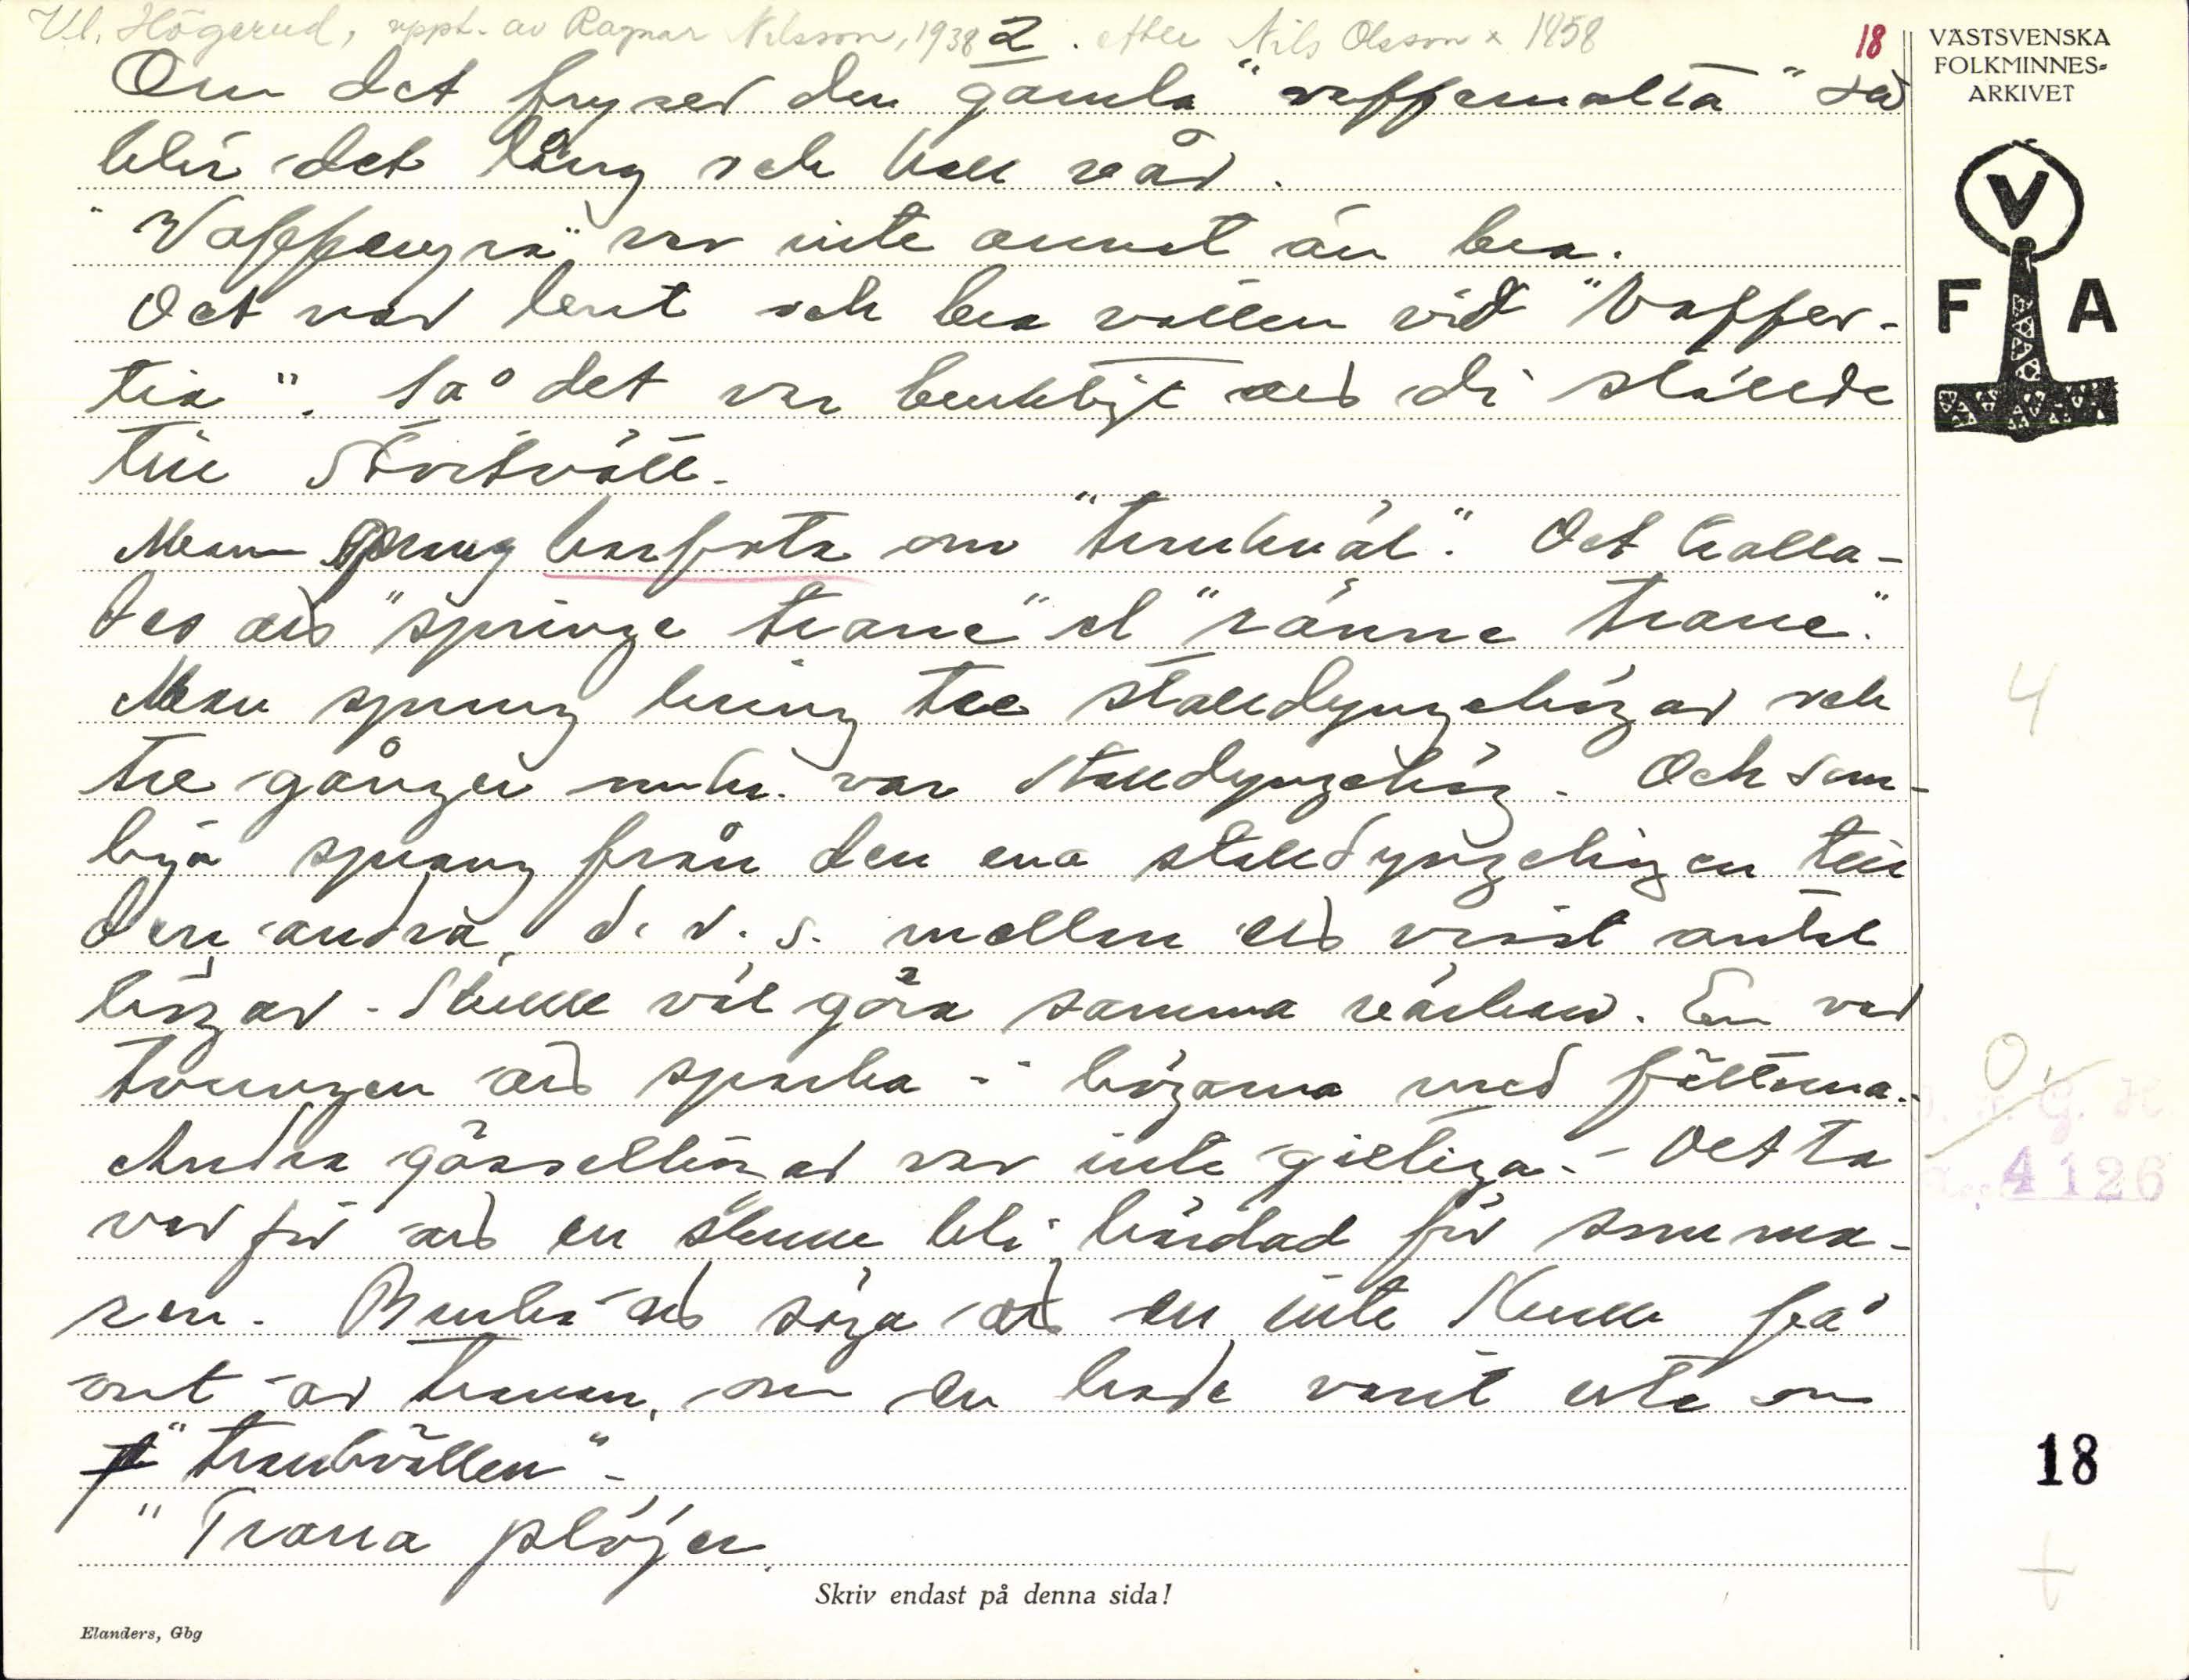 Vl. Högerud, uppt. av Ragnar Nilsson, 1938 2. efter Nils Olsson x 1858
18
VÄSTSVENSKA
FOLKMINNES-
ARKIVET
V
F A
Om det fryser den gamla "vaffernatta" så
blir det lång och kall vår.
"Vaffermyra" var inte annat än bra.
Det var lent och bra vatten vid "Vaffer-
tia". Så det var brukligt att di ställde
till Stortvätt.
Man sprang barfota om "trankväl". Det kalla-
des att "springe trane" el "ränne trane".
Man sprang kring tre stalldyngehögar och
tre gånger runt var stalldyngehög. Och sam-
tiga sprang från den ena stalldyngehögen till
den andra, d. v. s. mellan ett visst antal
högar. Skulle väl göra samma verkan. En var
tvungen att sparka i högarna med fötterna.
Andra gösselhögar var inte giltiga. - Detta
var för att en skulle bli härdad för somma-
ren. Bruka att säga att en inte skulle få
ont av tranan, om en hade varit ute om
"trankvällen".
"Trana plöjer.
4
4126
18
Skriv endast på denna sida!
Elanders, Gbg